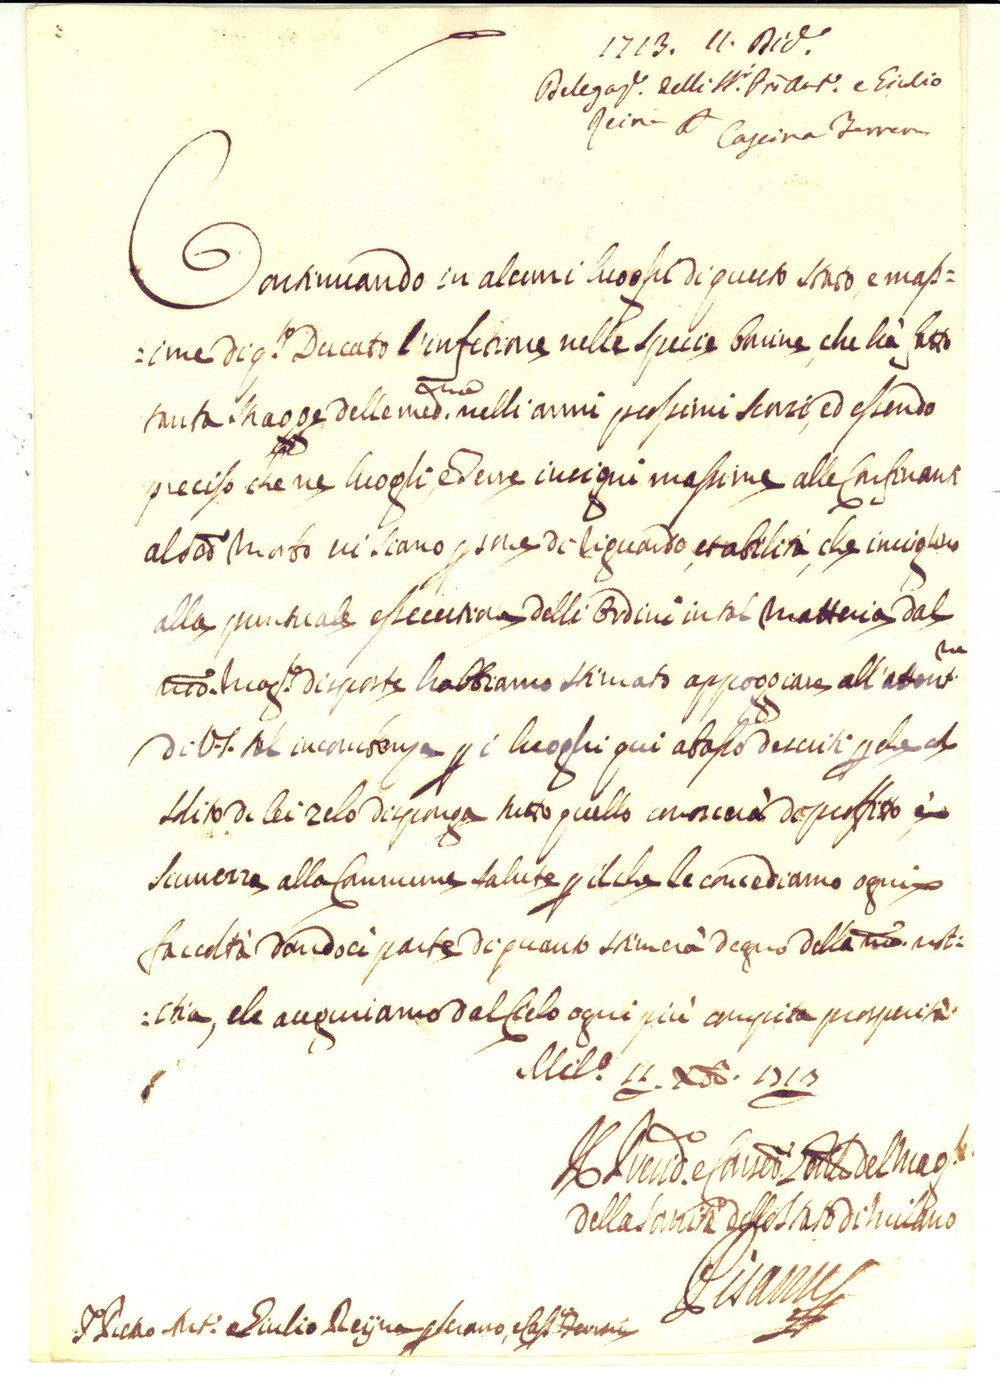 1713. 11. Dic.e
Delegaz.e delli SS.ri Pietro Ant.o e Giulio
Reina p
Cascina Ferrera
Continuando in alcuni luoghi di questo stato, e mass=
=ime di q.to Ducato l'infezione nelle specie bovine, che hà fatto
tanta stragge delle med.me nelli anni prossimi scorsi, ed essendo
preciso che ne luoghi, e Terre insigni massime alle Confinanti
al sud.o Morbo vi siano p.sone di riguardo, et abilità, che invigilino
alla puntuale essecutione delli Ordini in tal matteria dal
n.ro Mag.to disposte habbiamo stimato appoggiare all'attent.ne
di V.S. tal incombenza p i luoghi qui abasso descritti p che col
solito di lei zelo disponga tutto quello conoscerà di profitto, e
sicurezza alla Commune salute p il che le concediamo ogni
facoltà dandoci parte di quanto stimerà degno della n.ra not=
=itia, e le auguriamo dal Cielo ogni più compita prosperità.
Mil.o 11. Xbre. 1713
Il Presid.e e Conserv.ri del Mag.to
della Sanità dello Stato di Milano
Pisanus
S.r Pietro Ant.o e Giulio Reijna p Saronno, e Cass.a Ferrera